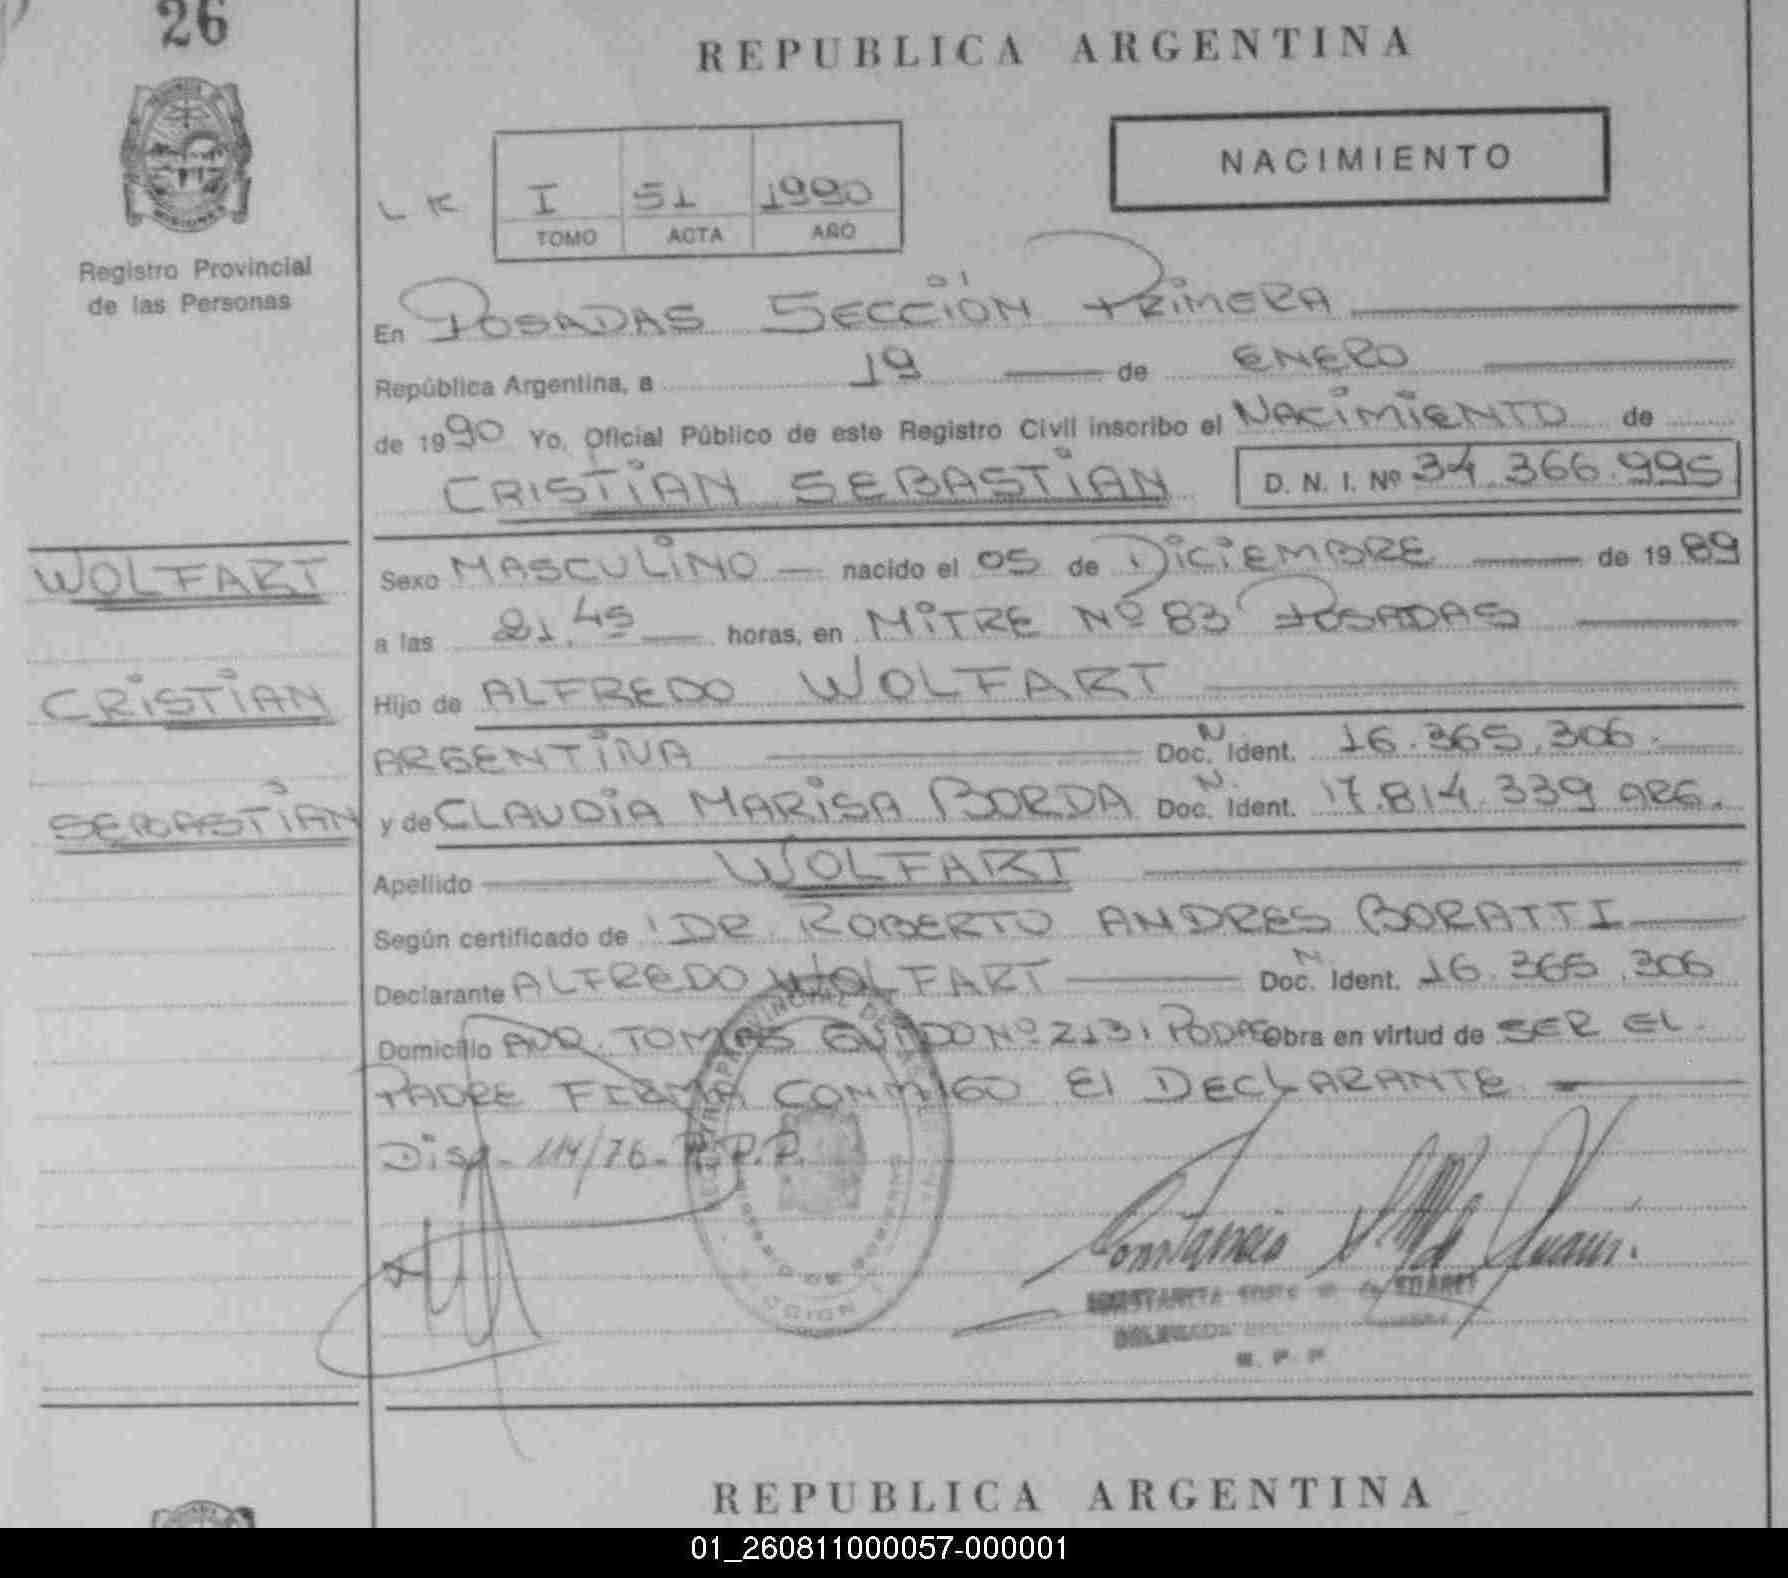 26
REPUBLICA ARGENTINA
NACIMIENTO
LK
I 51 1990
TOMO ACTA AÑO
Registro Provincial
de las Personas
En POSADAS SECCIÓN PRIMERA
República Argentina, a 19 de ENERO
de 1990 Yo, Oficial Público de este Registro Civil inscribo el NACIMIENTO de
CRISTIAN SEBASTIAN D. N. I. Nº 34.366.995
WOLFART
CRISTIAN
SEBASTIAN
Sexo MASCULINO nacido el 05 de DICIEMBRE de 1989
a las 21.45 horas, en MITRE Nº 83 POSADAS
Hijo de ALFREDO WOLFART
ARGENTINA Doc. N Ident. 16.365.306.
y de CLAUDIA MARISA BORDA Doc. N. Ident. 17.814.339 ARG.
Apellido WOLFART
Según certificado de DR. ROBERTO ANDRES BORATTI
Declarante ALFREDO WOLFART Doc. N Ident. 16.365.306
Domicilio AVD. TOMAS GUIDO Nº 2131 Obra en virtud de SER EL
PADRE FIRMA CONMIGO El DECLARANTE
Disp. 114/76- R.P.P.
R. P. P
REPUBLICA ARGENTINA
01_260811000057-000001